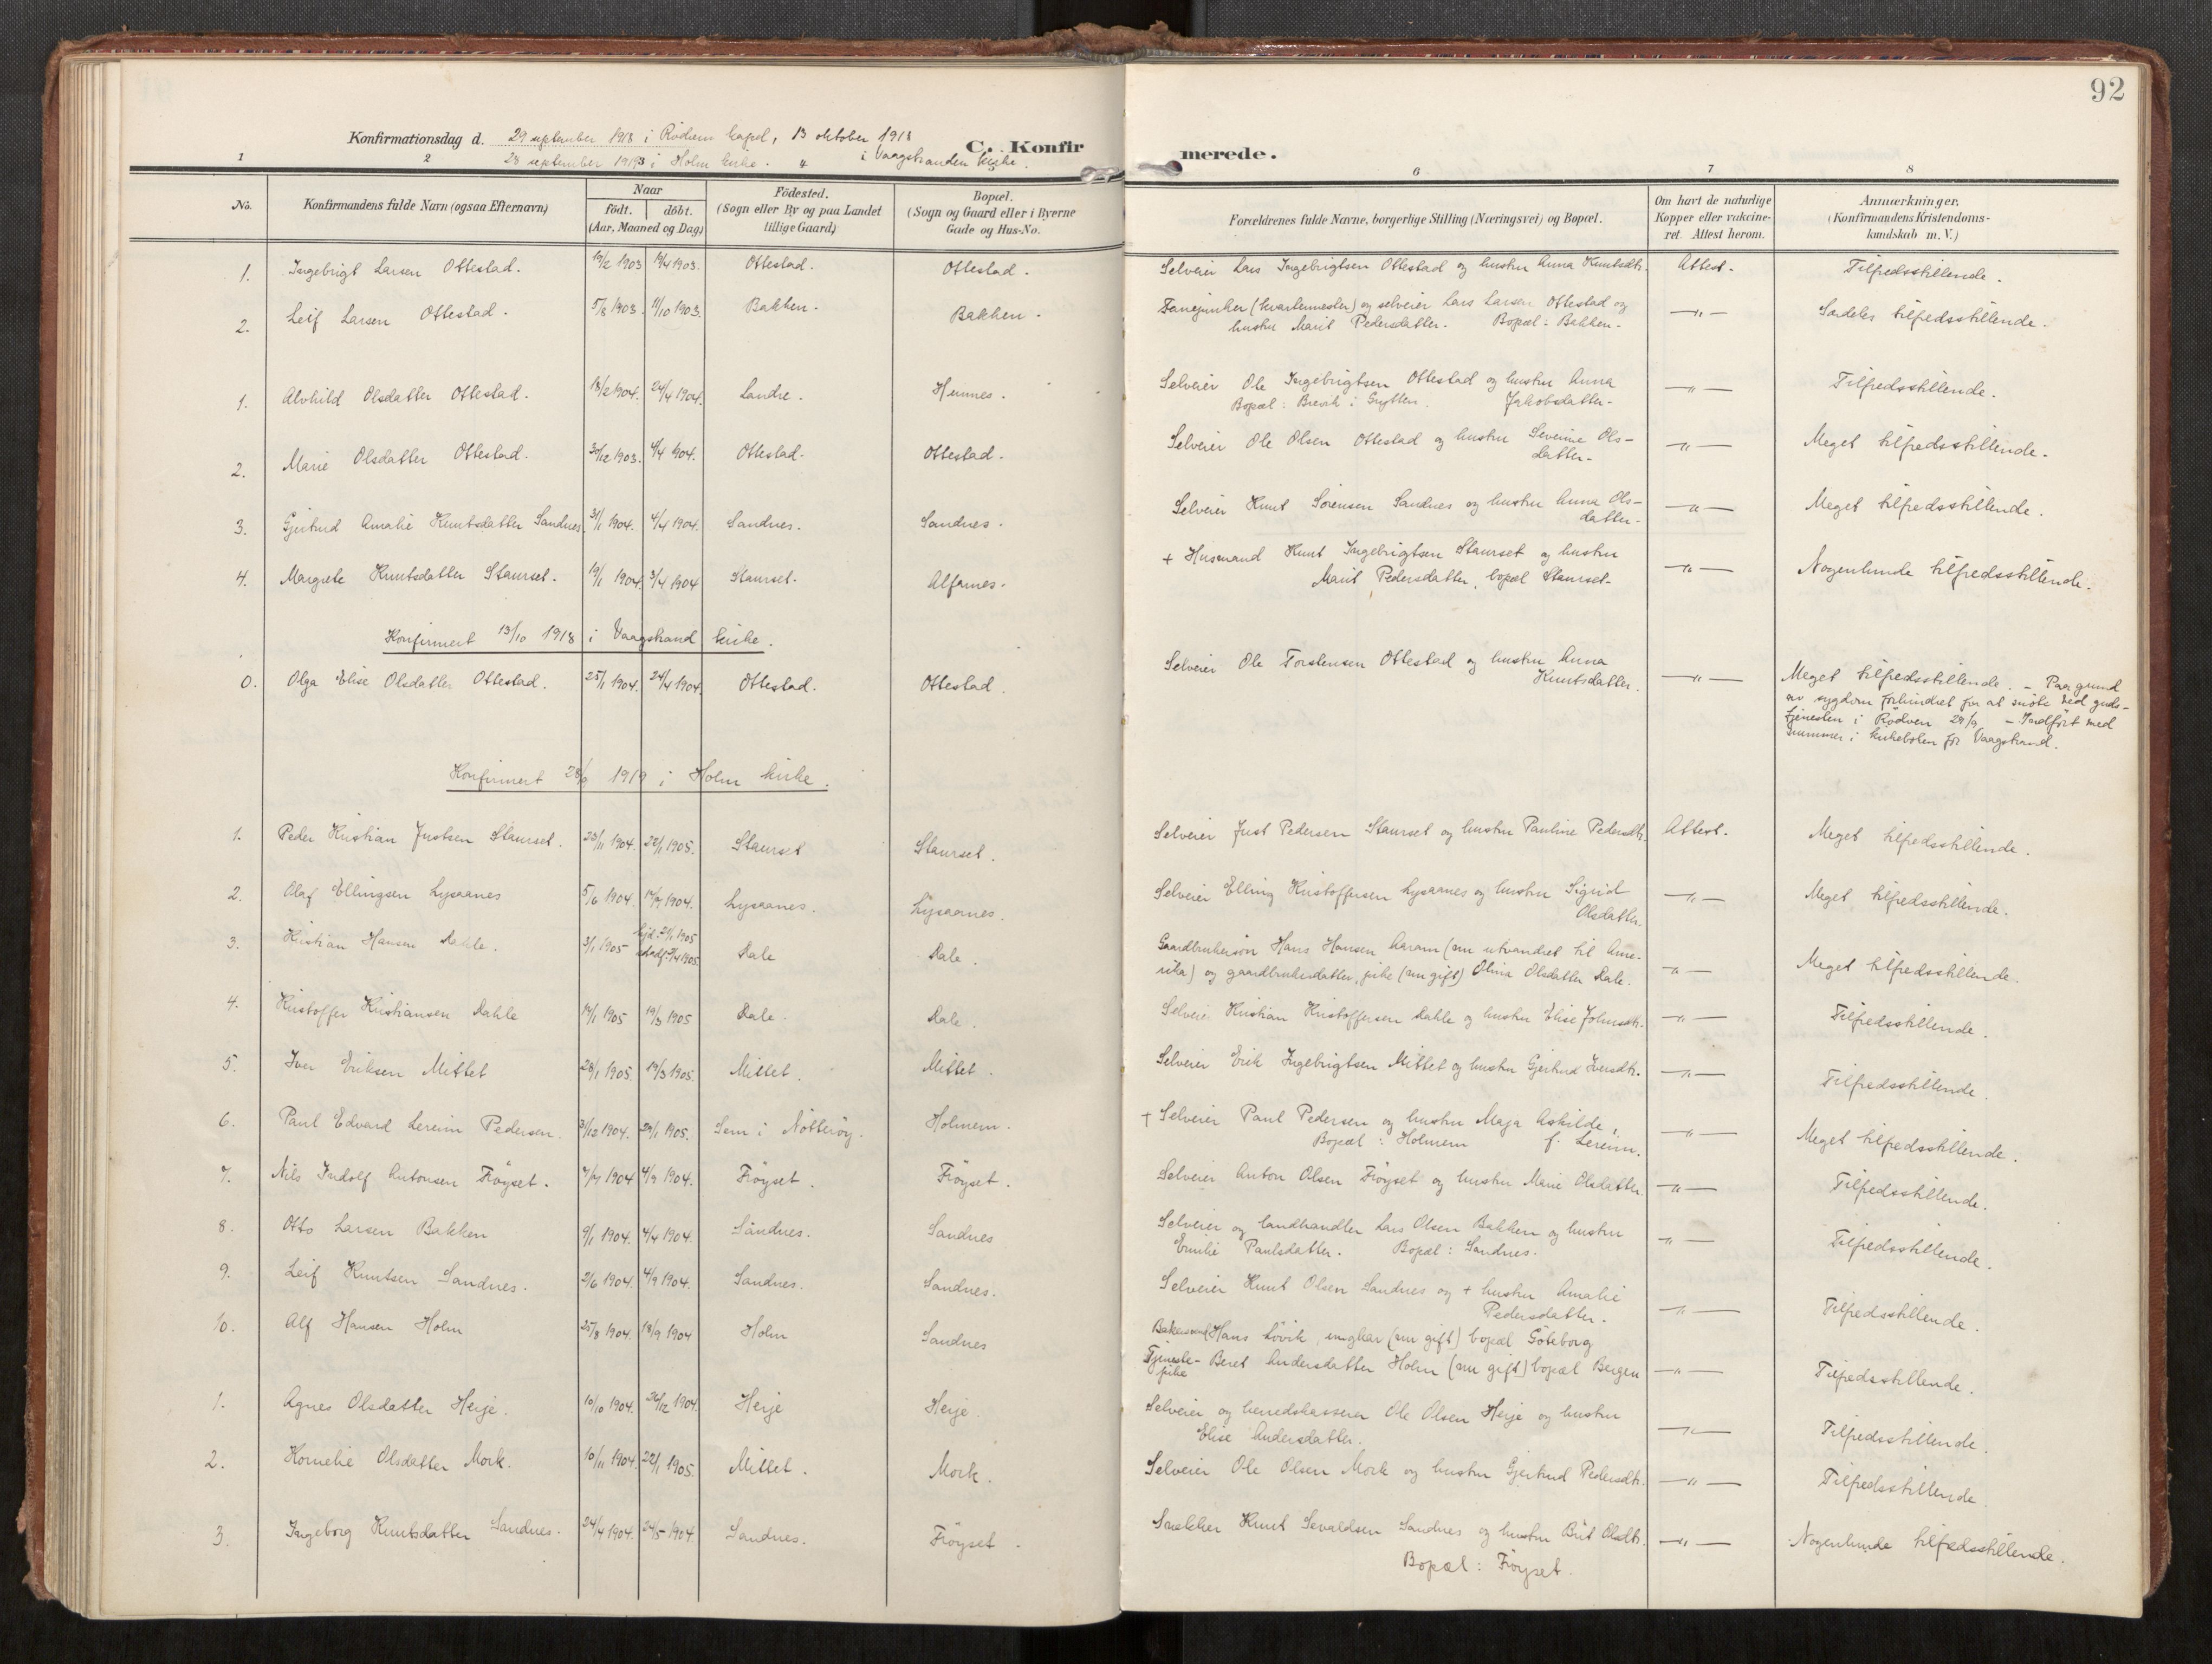 92
Konfirmationsdag d. 29 september 1918 i Rödven kapel, 13 oktober 1918
28 september 1919 i Holm kirke. i Vaagstranden kirke.
C. Konfirmerede.
1 2 6 7 8
No. Konfirmandens fulde Navn (ogsaa Efternavn) Naar födt. döbt. (Aar, Maaned og Dag) Födested. (Sogn eller By og paa Landet tillige Gaard) Bopæl. (Sogn og Gaard eller i Byerne Gade og Hus-No. Forældrenes fulde Navne, borgerlige Stilling (Næringsvei) og Bopæl. Om havt de naturlige Kopper eller vakcineret. Attest herom. Anmærkninger. (Konfirmandens Kristendomskundskab m. V.)
1. Ingebrigt Larsen Ottestad. 19/2 1903 19/4 1903. Ottestad. Ottestad. Selveier Lars Ingebrigtsen Ottestad og hustru Anna Knutsdtr. Attest. Tilfredsstillende.
2. Leif Larsen Ottestad. 5/8 1903. 11/10 1903. Bakken. Bakken. Fanejunker (kvartermester) og selveier Lars Larsen Ottestad og
hustru Marit Pedersdatter. Bopæl: Bakken. —"— Særdeles tilfredsstillende.
1. Alvhild Olsdatter Ottestad. 18/2 1904. 24/4 1904. Landre. Hennes. Selveier Ole Ingebrigtsen Ottestad og hustru Anna
Bopæl: Brevik i Grytten. Jakobsdatter. —"— Tilfredsstillende.
2. Marie Olsdatter Ottestad. 30/12 1903. 4/4 1904. Ottestad. Ottestad. Selveier Ole Olsen Ottestad og hustru Severine Ols-
datter. —"— Meget tilfredsstillende.
3. Gjertrud Amalie Knutsdatter Sandnes. 31/1 1904. 4/4 1904. Sandnes. Sandnes. Selveier Knut Sörensen Sandnes og hustru Anna Ols-
datter. —"— Meget tilfredsstillende.
4. Margrete Knutsdatter Staurset. 19/1 1904 3/4 1904 Staurset. Alfarnes. + Husmand Knut Ingebrigtsen Staurset og hustru
Marit Pedersdatter, bopæl Staurset. —"— Nogenlunde tilfredsstillende.
Konfirmert 13/10 1918 i Vaagstrand kirke.
0. Olga Elise Olsdatter Ottestad. 25/1 1904. 24/4 1904. Ottestad. Ottestad. Selveier Ole Torstensen Ottestad og hustru Anna
Knutsdatter. —"— Meget tilfredsstillende. - Paa grund
av sygdom forhindret for at möte ved guds-
tjenesten i Rödven 29/9 - Indfört med
nummer i kirkeboken for Vaagstrand.
Konfirmert 28/9 1919 i Holm kirke.
1. Peder Kristian Justsen Staurset. 23/11 1904. 22/1 1905. Staurset Staurset. Selveier Just Pedersen Staurset og hustru Pauline Pedersdtr. Attest. Meget tilfredsstillende.
2. Olaf Ellingsen Lysaanes 5/6 1904. 17/7 1904. Lysaanes. Lysaanes. Selveier Elling Kristoffersen Lysaanes og hustru Sigrid
Olsdatter. —"— Meget tilfredsstillende.
3. Kristian Hansen Dahle. 3/1 1905 Dale Dale. Gaardbrukersön Hans Hansen Aaram (nu utvandret til Ame-
rika) og gaardbrukerdatter, pike (nu gift) Olina Olsdatter Dale. —"— Meget tilfredsstillende.
4. Kristoffer Kristiansen Dahle 14/1 1905 19/3 1905 Dale. Dale. Selveier Kristian Kristoffersen Dahle og hustru Elise Johnsdtr. —"— Tilfredsstillende.
5. Iver Eriksen Mittet 28/1 1905. 19/3 1905. Mittet. Mittet. Selveier Erik Ingebrigtsen Mittet og hustru Gjertrud Iversdtr. —"— Tilfredsstillende.
6. Paul Edvard Lereim Pedersen. 31/12 1904. 29/1 1905. Sem i Nötteröy. Holmem. + Selveier Paul Pedersen og hustru Maja Askilde,
Bopæl: Holmem f. Lereim. —"— Meget tilfredsstillende.
7. Nils Indolf Antonsen Fröyset. 7/7 1904 4/9 1904. Fröyset. Fröyset. Selveier Anton Olsen Fröyset og hustru Marie Olsdatter. —"— Tilfredsstillende.
8. Otto Larsen Bakken 9/1 1904. 4/4 1904. Sandnes. Sandnes Selveier og landhandler Lars Olsen Bakken og hustru
Emilie Paulsdatter. Bopæl: Sandnes. —"— Tilfredsstillende.
9. Leif Knutsen Sandnes. 2/6 1904. 4/9 1904. Sandnes. Sandnes. Selveier Knut Olsen Sandnes og + hustru Amalie
Pedersdatter. —"— Tilfredsstillende.
10. Alf Hansen Holm 25/8 1904. 18/9 1904 Holm Sandnes Hans Lövik, ungkar (nu gift) bopæl Göteborg
Tjeneste-pike Beret Andersdatter Holm (nu gift) bopæl Bergen —"— Tilfredsstillende.
1. Agnes Olsdatter Herje. 10/10 1904. 26/12 1904. Herje Herje. Selveier og herredskasserer Ole Olsen Herje og hustru
Elise Andersdatter. —"— Tilfredsstillende.
2. Kornelie Olsdatter Mork. 10/11 1904. 22/1 1905. Mittet. Mork. Selveier Ole Olsen Mork og hustru Gjertrud Pedersdtr. —"— Tilfredsstillende.
3. Ingeborg Knutsdatter Sandnes. 24/4 1904. 24/5 1904. Sandnes. Fröyset. Snekker Knut Sevaldsen Sandnes og hustru Brit Olsdtr. —"— Nogenlunde tilfredsstillende.
Bopæl: Fröyset.